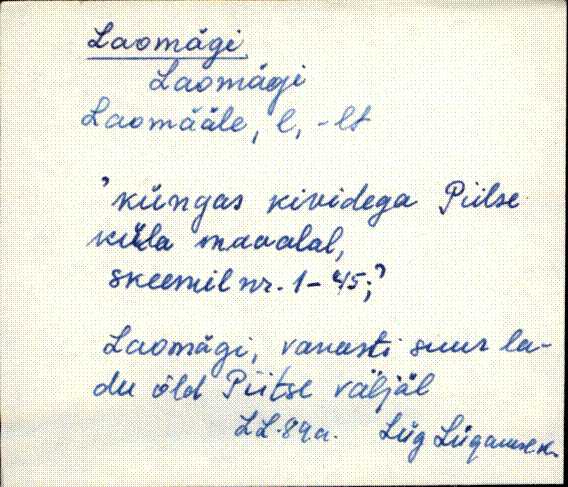 Laomägi
Laomägi
Laomääle, l, -lt
'küngas kividega Piilse
küla maaalal,
skeemil nr. 1-45;'
Laomägi, vanasti suur la-
du õld Piitse väljäl
LL. 89a. Lüg